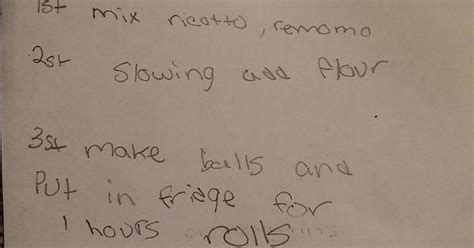 1st mix ricotto, remomo
2st slowing add flour
3st make balls and
Put in fridge for
1 hours rolls